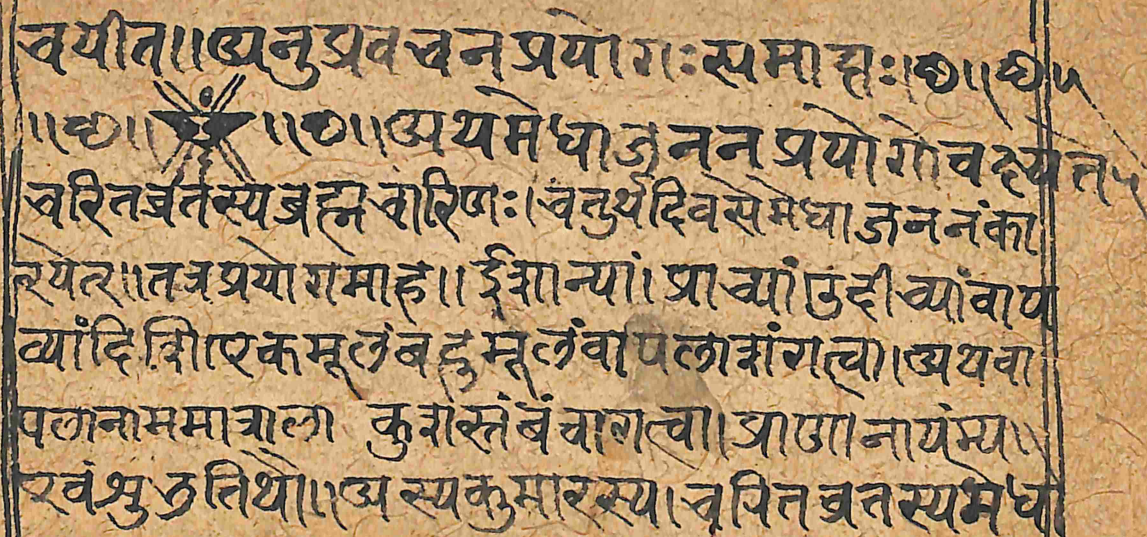 चयीत॥अनुप्रवचनप्रयोगःसमाप्तः।छ॥छ॥
॥छ॥ ॥छ॥अथमेधाजननप्रयोगोवक्ष्यते
चरितव्रतस्यब्रह्मचारिणः।चतुर्थदिवसेमेधाजननंका
रयेत्॥तत्रप्रयोगमाह॥ईशान्यां।प्राच्यांउदीच्यांवाप
व्यांदिशि।एकमूलंबहुमूलंवापलाशंगत्वा।अथवा
पलानाममात्राला कुशस्तंबंवागत्वा।प्राणानायंम्य॥
एवंश्रुततिथौ॥अस्यकुमारस्य।चरितव्रतस्यमेधा